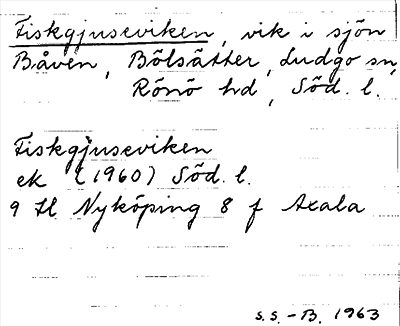 Fiskgjuseviken, vik i sjön
Båven, Bölsätter, Ludgo sn,
Rönö hd, Söd. l.
Fiskgjuseviken
ek (1960) Söd. l.
9 H Nyköping 8 f Axala
S.S. - B. 1963